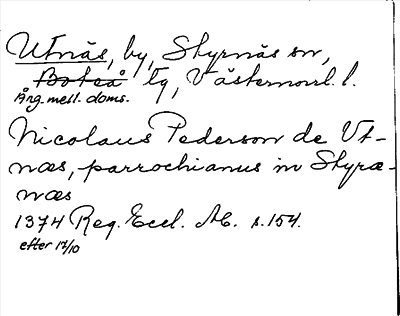 Utnäs, by, Styrnäs sn,
Boteå tg, Västernorrl. l.
Ång. mell. doms.
Nicolaus Pederson de Ut-
næs, parrochianus in Styræ-
næs
1374 Reg. Eccl. AC. s. 154.
efter 17/10